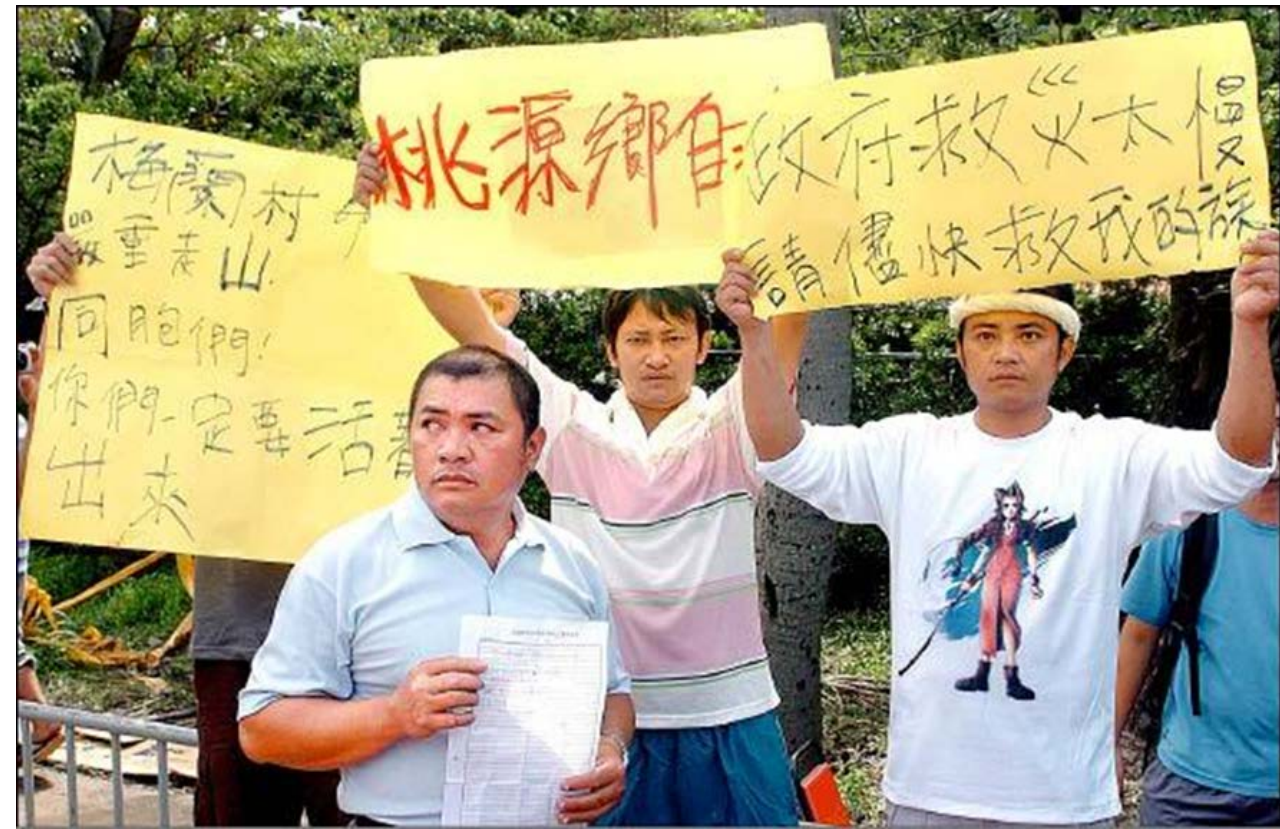 梅蘭村
嚴重走山.
同胞們!
你們一定要活著
出來
桃源鄉自
政府救災太慢
請儘快救我的族